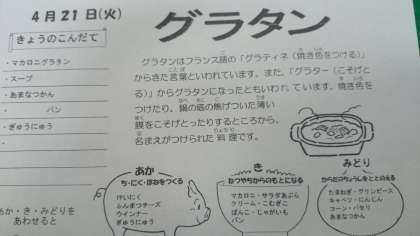 4月21日(火)
グラタン
きょうのこんだて
・マカロニグラタン
・スープ
・あまなつかん
・パン
・ぎゅうにゅう
グラタンはフランス語の「グラティネ(焼き色をつける)」
からきた言葉といわれています。また、「グラター(こそげと
る)」からグラタンになったともいわれています。焼き色を
つけたり、鍋の底の焦げついた薄い
膜をこそげとったりするところから、
名まえがつけられた料理です。
あか・き・みどりを
あわせると
あか
ち・にく・ほねをつくる
けいにく
ふんまつチーズ
ウインナー
ぎゅうにゅう
き
ねつやちからのもとになる
マカロニ・サラダあぶら
クリーム・こむぎこ
ぱんこ・じゃがいも
パン
みどり
からだのちょうしをととのえる
たまねぎ・グリンピース
キャベツ・にんじん
コーン・パセリ
あまなつかん